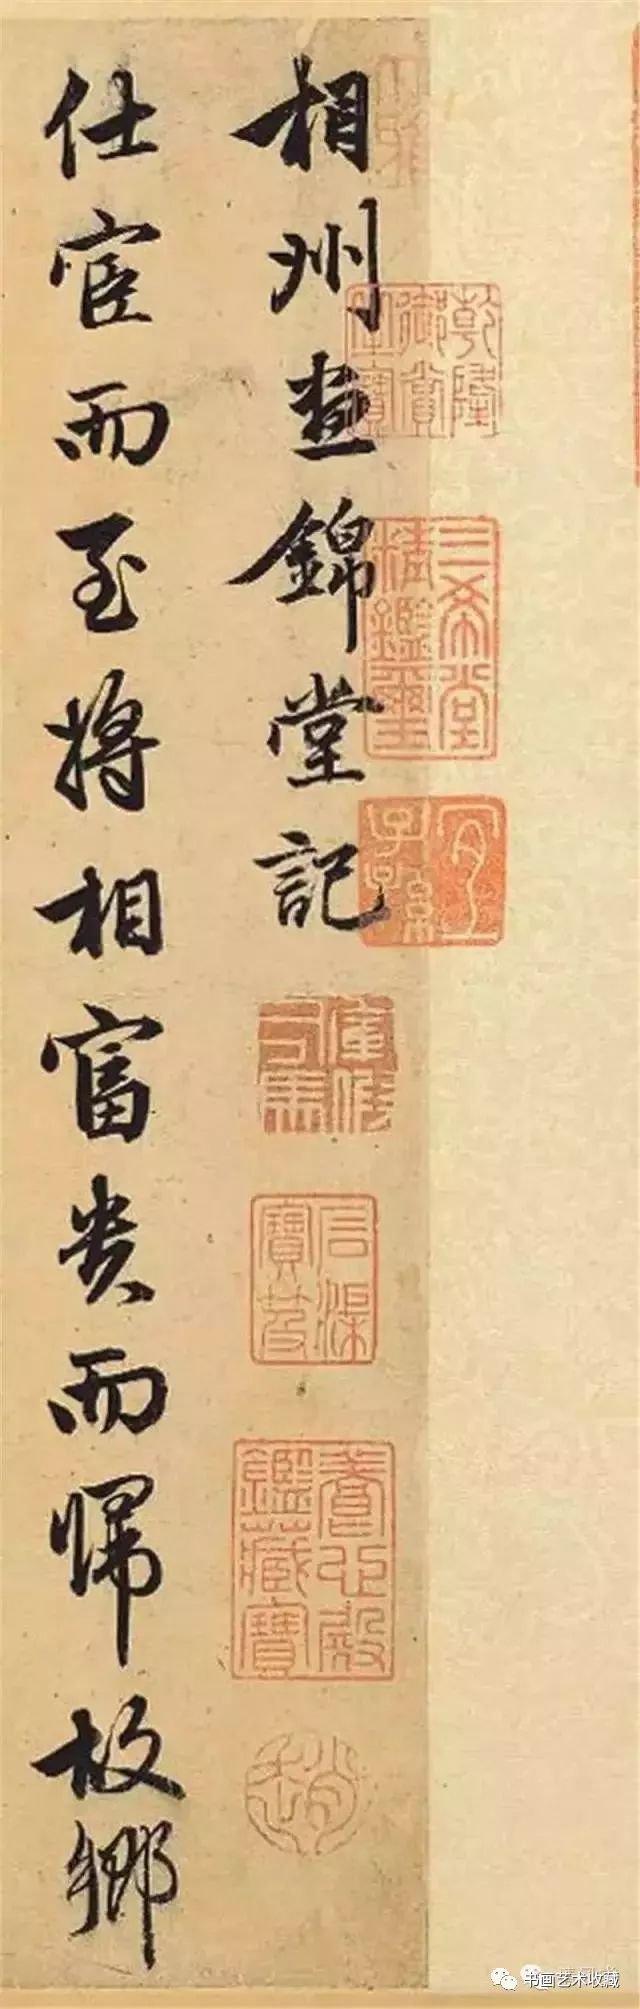 相州昼錦堂記
仕宦而至将相富貴而帰故郷
乾隆御賞之寶
三希堂精鑑璽
宜子孫
石渠寶笈
養心殿鑑藏寶
趙
书画艺术收藏